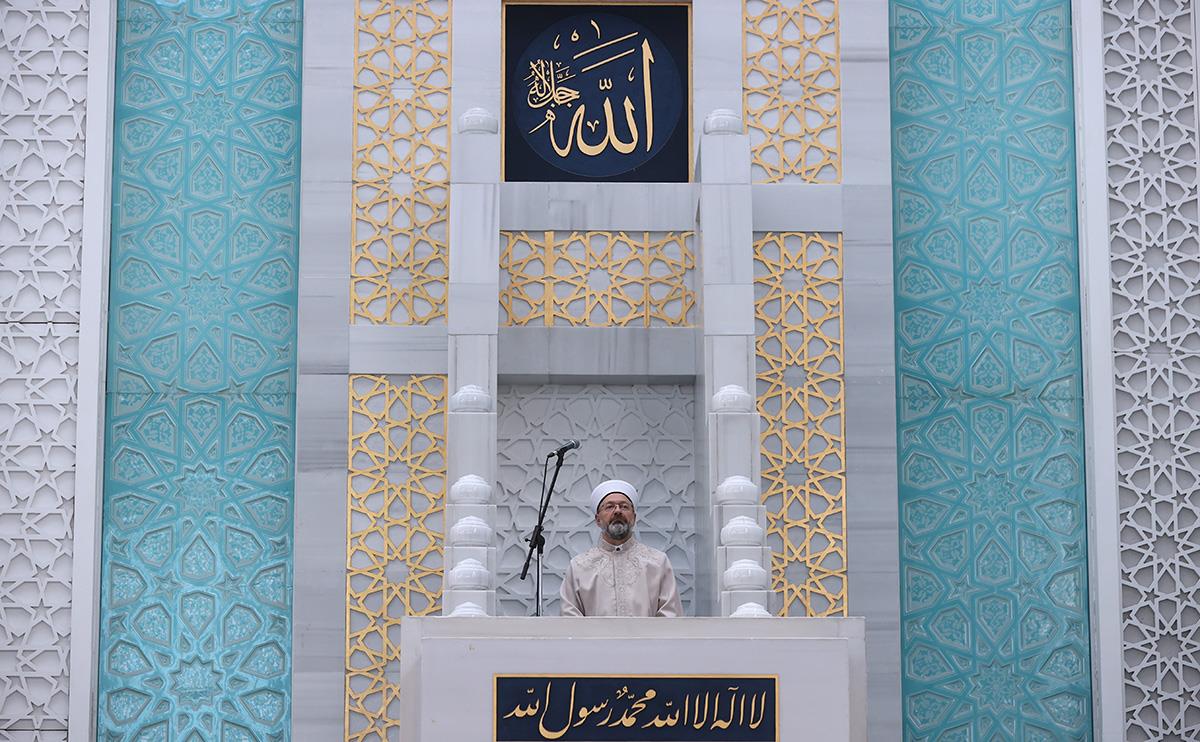 الله جل جلاله
لا اله الا الله محمد رسول الله